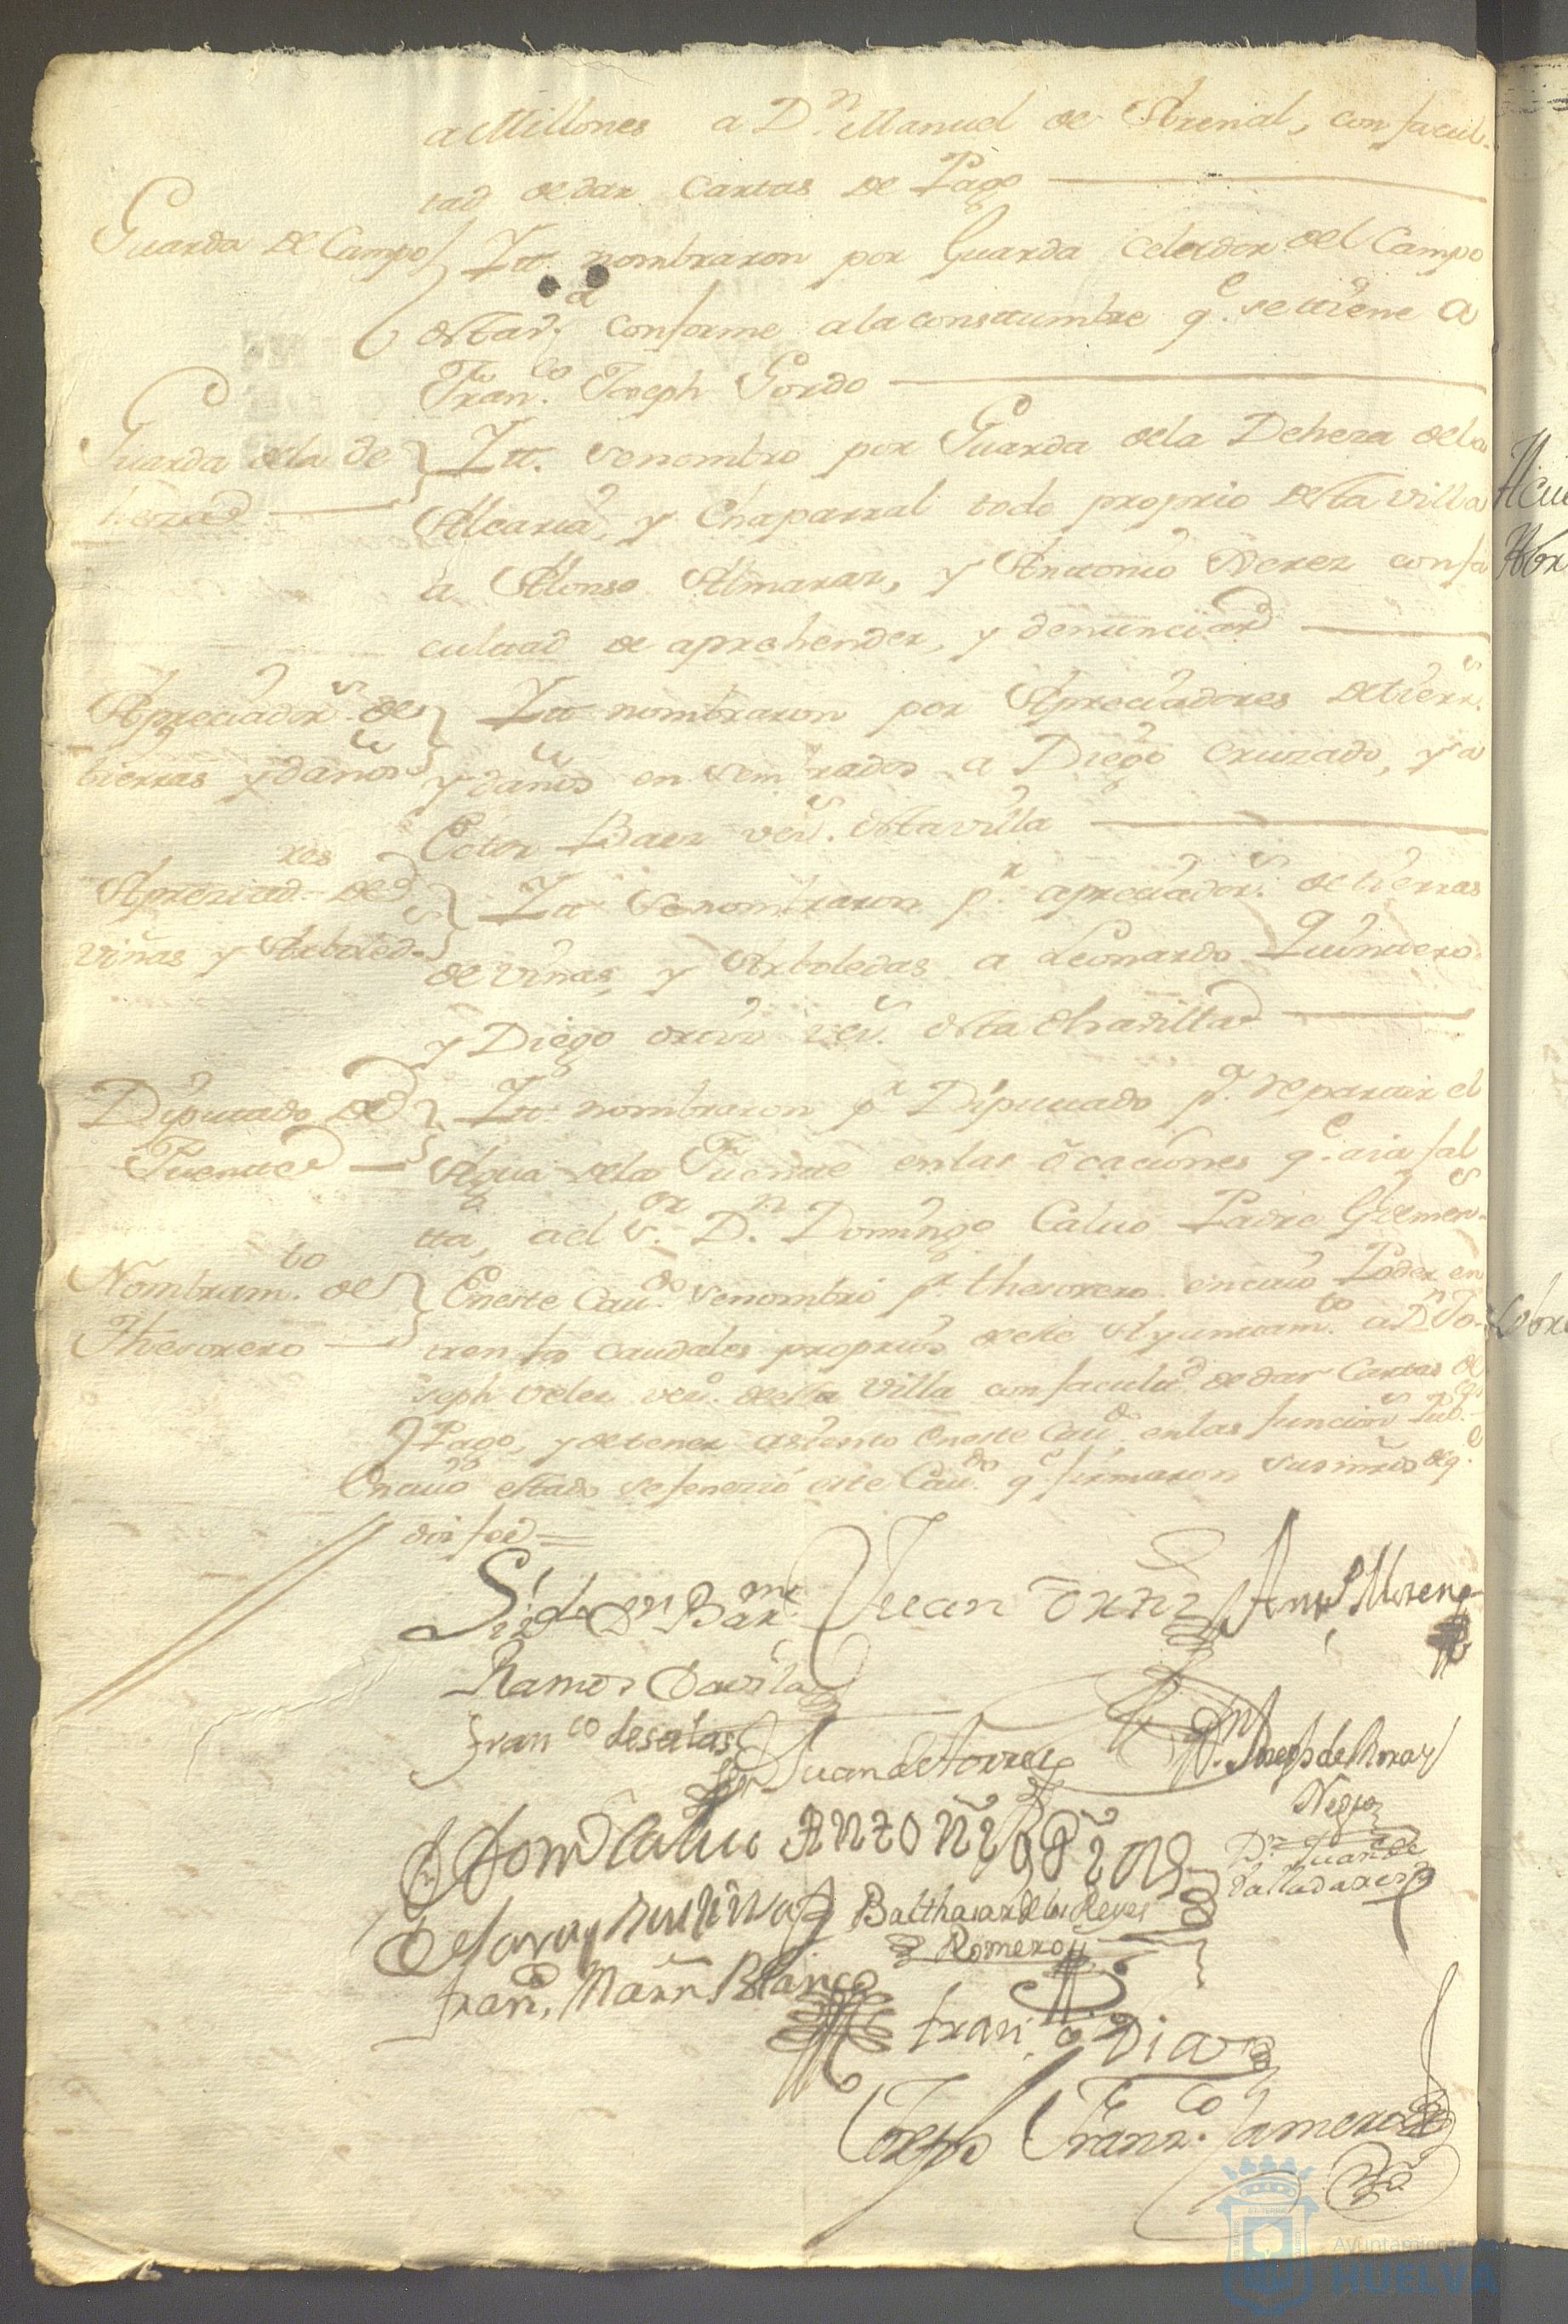 a Millones a D.n Manuel de Arenal, con facul-
tad de dar Cartas de Pago
Guarda de Campo
Itt. nombraron por Guarda Celador del Campo
desta v.a conforme a la constumbre q.e se tiene a
Fran.co Joseph Gordo
Guarda de la de
heza
Itt. se nombro por Guarda de la Deheza de la
Alcaria, y Chaparral todo proprio desta Villa
a Alonso Almaraz, y Antonio Perez con fa
cultad de aprehender, y denunciar
Apreciador.s de
tierras y daños
Itt nombraron por Apreciadores de tierr.s
y daños en sembrados a Diego Cruzado, y a
Ector Baez vez.s desta villa
Apreziad.res de
viñas y Arboled.s
Itt se nombraron p.r apreciador.s de tierras
de viñas, y Arboledas a Leonardo Quintero
y Diego vez.s desta dha villa
Diputado de
Fuente
Itt nombraron p.r Diputado p.a repartir el
Agua de la Fuente en las ocaciones q.e aia fal
tta, a el s.or D.n Domingo Caluo Padre Gl de men.s
Nombram.to de
Thesorero
En este Cau.do se nombró p.r thesorero, en cuio Poder en
tren los caudales proprios deste Ayuntam.to a D.n Jo-
seph Velez vez.o desta Villa con facultd. de dar Cartas de
Pago, y de tener asiento en este Cau.do en las funcion.s Pub.cas
En cuio estado se fenezió este Cau.do q.e firmaron sus mrds de q.e
doi fee =
Liz.do D.n Bar.me
Ramos Davila
Juan Ortiz
Ant.o Moreno
Fran.co de salas
Juan de torres
D.n Joseph de
Negro
Dom.o Caluo
D.n Juan de
Valladares
Balthasar de los Reyes
Romero
Fran.co Marn Blanco
Fran.co Diaz
Joseph Fran.co Zamora
Ayuntamiento
HUELVA